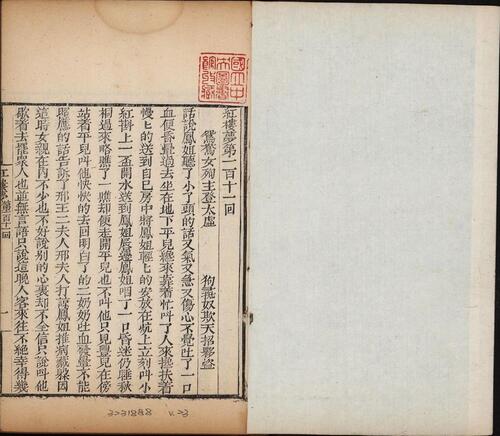 紅樓夢第一百十一回
鴛鴦女殉主登太虛 狗彘奴欺天招夥盜
話說鳳姐聽了小丫頭的話又氣又急又傷心不覺吐了一口
血便昏暈過去坐在地下平兒纔來靠着忙叫了人來攙扶着
慢七的送到自己房中將鳳姐輕七的安放在炕上立刻叫小
紅掛上一盃開水送到鳳姐唇邊鳳姐呷了一口昏迷仍睡秋
桐過來略瞧了一瞧却便走開平兒也不叫他只見豐兒在傍
站着平兒叫他快快的去回明白了的二奶奶吐血發暈不能
照應的話告訴了邢王二夫人邢夫人打諒鳳姐推病藏躱因
這時女親在內不少也不好說別的心裏却不全信只說叫他
歇着去罷衆人也並無言語只說這晚人客來往不絕幸得幾
紅樓夢 第百十一回 一
3231888 v.23